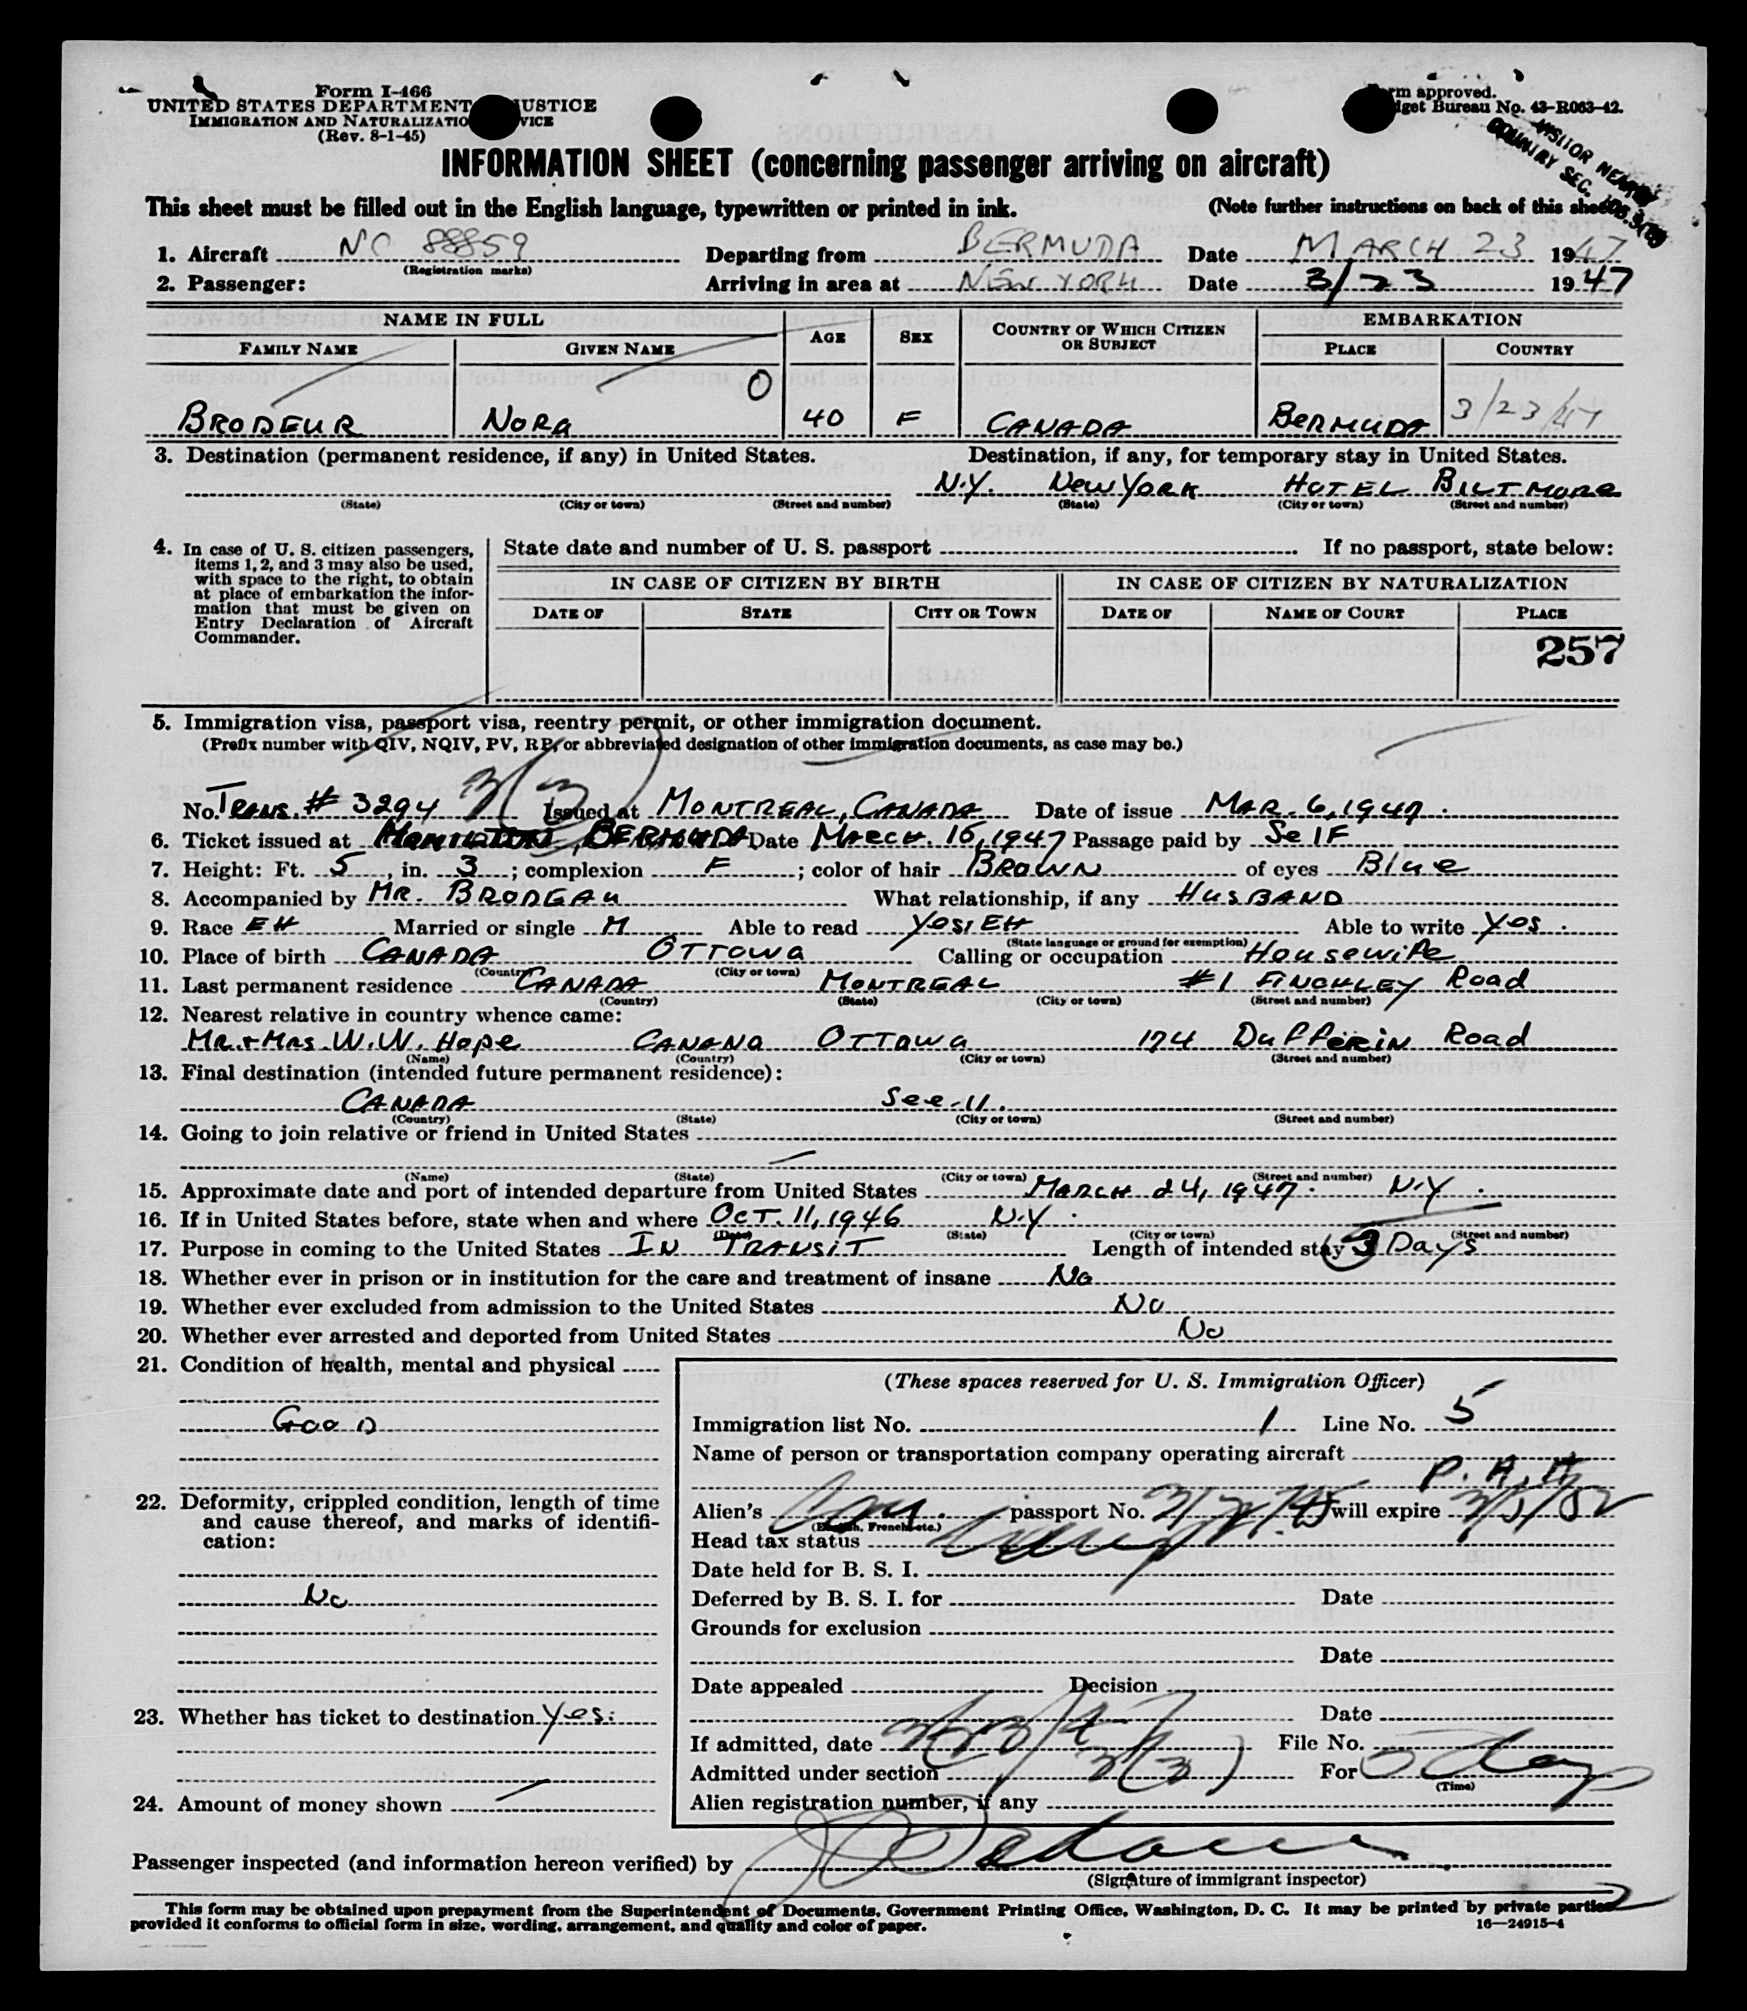 Form I-466
UNITED STATES DEPARTMENT JUSTICE
IMMIGRATION AND NATURALIZATION SERVICE
(Rev. 8-1-45)
Form approved.
Budget Bureau No. 43-R063-42.
VISITOR
COUNTRY SEC.
INFORMATION SHEET (concerning passenger arriving on aircraft)
This sheet must be filled out in the English language, typewritten or printed in ink. (Note further instructions on back of this sheet)
1. Aircraft NC 88859 Departing from BERMUDA Date MARCH 23 1947
(Registration marks)
2. Passenger: Arriving in area at NEW YORK Date 3/23 1947
NAME IN FULL AGE SEX COUNTRY OF WHICH CITIZEN OR SUBJECT EMBARKATION
FAMILY NAME GIVEN NAME PLACE COUNTRY
0
BRODEUR NORA 40 F CANADA BERMUDA 3/23/47
3. Destination (permanent residence, if any) in United States. Destination, if any, for temporary stay in United States.
N.Y. NEW YORK HOTEL BILTMORE
(State) (City or town) (Street and number) (State) (City or town) (Street and number)
4. In case of U. S. citizen passengers, items 1, 2, and 3 may also be used, with space to the right, to obtain at place of embarkation the information that must be given on Entry Declaration of Aircraft Commander.
State date and number of U. S. passport If no passport, state below:
IN CASE OF CITIZEN BY BIRTH IN CASE OF CITIZEN BY NATURALIZATION
DATE OF STATE CITY OR TOWN DATE OF NAME OF COURT PLACE
257
5. Immigration visa, passport visa, reentry permit, or other immigration document.
(Prefix number with QIV, NQIV, PV, RP, or abbreviated designation of other immigration documents, as case may be.)
3(3)
No. TRANS. # 3294 Issued at MONTREAL, CANADA Date of issue MAR. 6, 1947.
6. Ticket issued at HAMILTON, BERMUDA Date MARCH. 15, 1947 Passage paid by SELF
7. Height: Ft. 5, in. 3; complexion F; color of hair BROWN of eyes Blue
8. Accompanied by MR. BRODEAU What relationship, if any HUSBAND
9. Race EH Married or single M Able to read YES, EH Able to write Yes.
(State language or ground for exemption)
10. Place of birth CANADA OTTOWA Calling or occupation Housewife
(Country) (City or town)
11. Last permanent residence CANADA MONTREAL #1 FINCHLEY Road
(Country) (State) (City or town) (Street and number)
12. Nearest relative in country whence came:
MR. + MRS. W. W. Hope CANANA OTTOWA 174 DUFFERIN Road
(Name) (Country) (City or town) (Street and number)
13. Final destination (intended future permanent residence):
CANADA See-11.
(Country) (State) (City or town) (Street and number)
14. Going to join relative or friend in United States
(Name) (State) (City or town) (Street and number)
15. Approximate date and port of intended departure from United States MARCH 24, 1947. N.Y.
16. If in United States before, state when and where OCT. 11, 1946 N.Y.
(Date) (State) (City or town) (Street and number)
17. Purpose in coming to the United States IN TRANSIT Length of intended stay 3 Days
18. Whether ever in prison or in institution for the care and treatment of insane No
19. Whether ever excluded from admission to the United States No
20. Whether ever arrested and deported from United States No
21. Condition of health, mental and physical
GOOD
22. Deformity, crippled condition, length of time and cause thereof, and marks of identification:
No
23. Whether has ticket to destination Yes.
24. Amount of money shown
(These spaces reserved for U. S. Immigration Officer)
Immigration list No. 1 Line No. 5
Name of person or transportation company operating aircraft
P. A. A
Alien's passport No. will expire
(English, French, etc.)
Head tax status
Date held for B. S. I.
Deferred by B. S. I. for Date
Grounds for exclusion
Date
Date appealed Decision
Date
If admitted, date 3/23/47 File No.
Admitted under section 3(3) For
(Time)
Alien registration number, if any
Passenger inspected (and information hereon verified) by
(Signature of immigrant inspector)
This form may be obtained upon prepayment from the Superintendent of Documents, Government Printing Office, Washington, D. C. It may be printed by private parties
provided it conforms to official form in size, wording, arrangement, and quality and color of paper. 16—24915-4